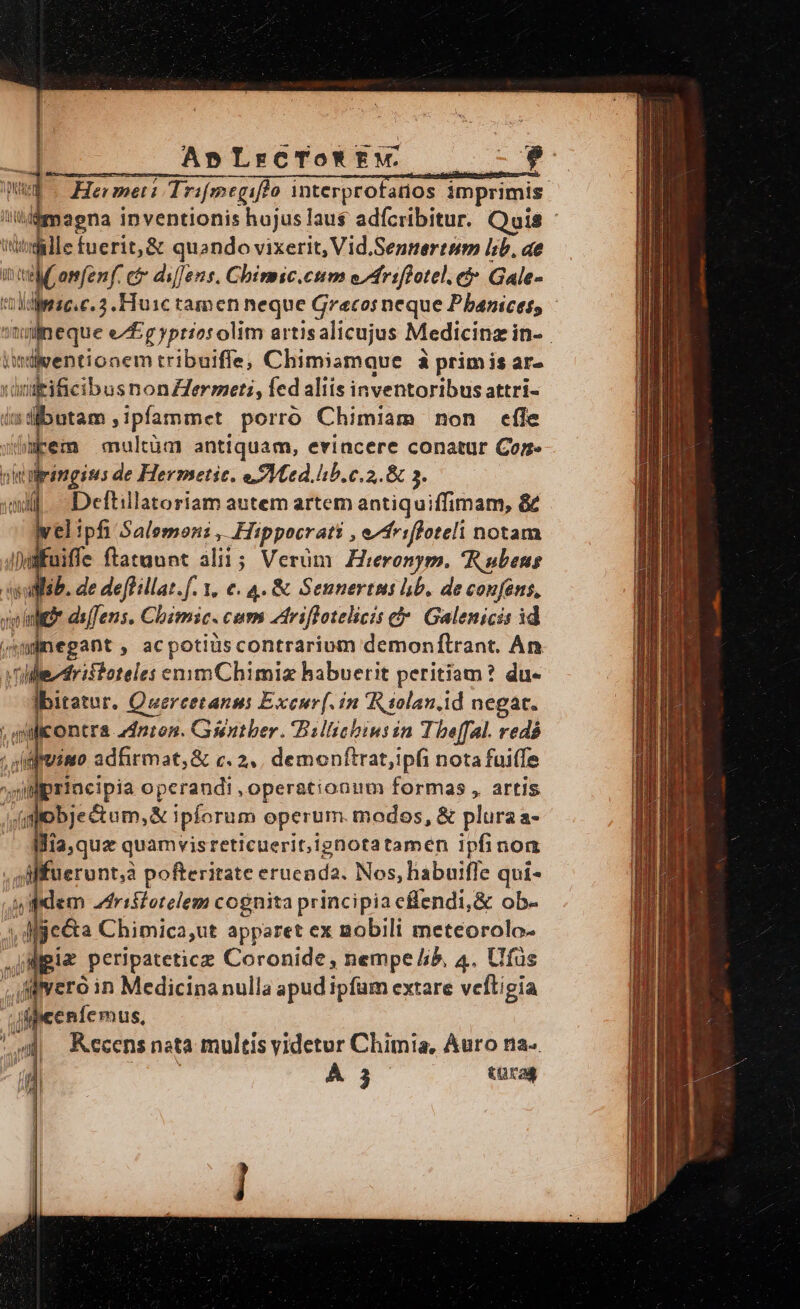 AD LECTOREM. 5
Hermeti Trismegisto interprofanos imprimis
magna inventionis hujus laus adſcribitur. Quis
ille fuerit, & quando vixerit, Vid. Sennertum lib. de
Conſenſ. & diſſens. Chimic. cum Ariſtotel. & Gale-
nic. c. 3. Huic tamen neque Græcos neque Phænices,
neque Ægyptios olim artis alicujus Medicinæ in-
ventionem tribuiſſe, Chimiamque à primis ar-
tificibus non Hermeti, ſed aliis inventoribus attri-
butam, ipſammet porrò Chimiam non eſſe
rem multùm antiquam, evincere conatur Con-
ringius de Hermetic. Med. lib. c. 2. & 3.
Deſtillatoriam autem artem antiquiſſimam, &
vel ipſi Salomoni, Hippocrati, Ariſtoteli notam
fuiſſe ſtatuunt alii; Verùm Hieronym. Rubeus
lib. de deſtillat. ſ. 1, c. 4. & Sennertus lib. de conſens.
& diſſens. Chimic. cum Ariſtotelicis & Galenicis id
negant, ac potiùs contrarium demonſtrant. An
Ariſtoteles enim Chimiæ habuerit peritiam? du-
bitatur. Quercetanus Excurſ. in Riolan. id negat.
contra Anton. Günther. Billichius in Theſſal. redi
vivo adfirmat, & c. 2, demonſtrat, ipſi nota fuiſſe
principia operandi, operationum formas, artis
objectum, & ipſorum operum modos, & plura a-
lia, quæ quamvis reticuerit, ignota tamen ipſi non
fuerunt, à poſteritate eruenda. Nos, habuiſſe qui-
dem Ariſtotelem cognita principia eſſendi, & ob-
jecta Chimica, ut apparet ex nobili meteorolo-
giæ peripateticæ Coronide, nempe lib. 4. Uſûs
verò in Medicina nulla apud ipſum extare veſtigia
cenſemus,
Recens nata multis videtur Chimia, Auro na-
A 3 turas